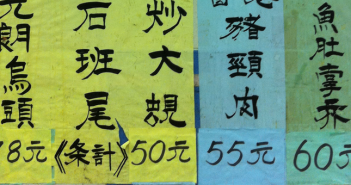 朗烏頭
8元
石班尾
《條計》
炒大蜆
50元
豬頸肉
55元
魚肚掌
60元